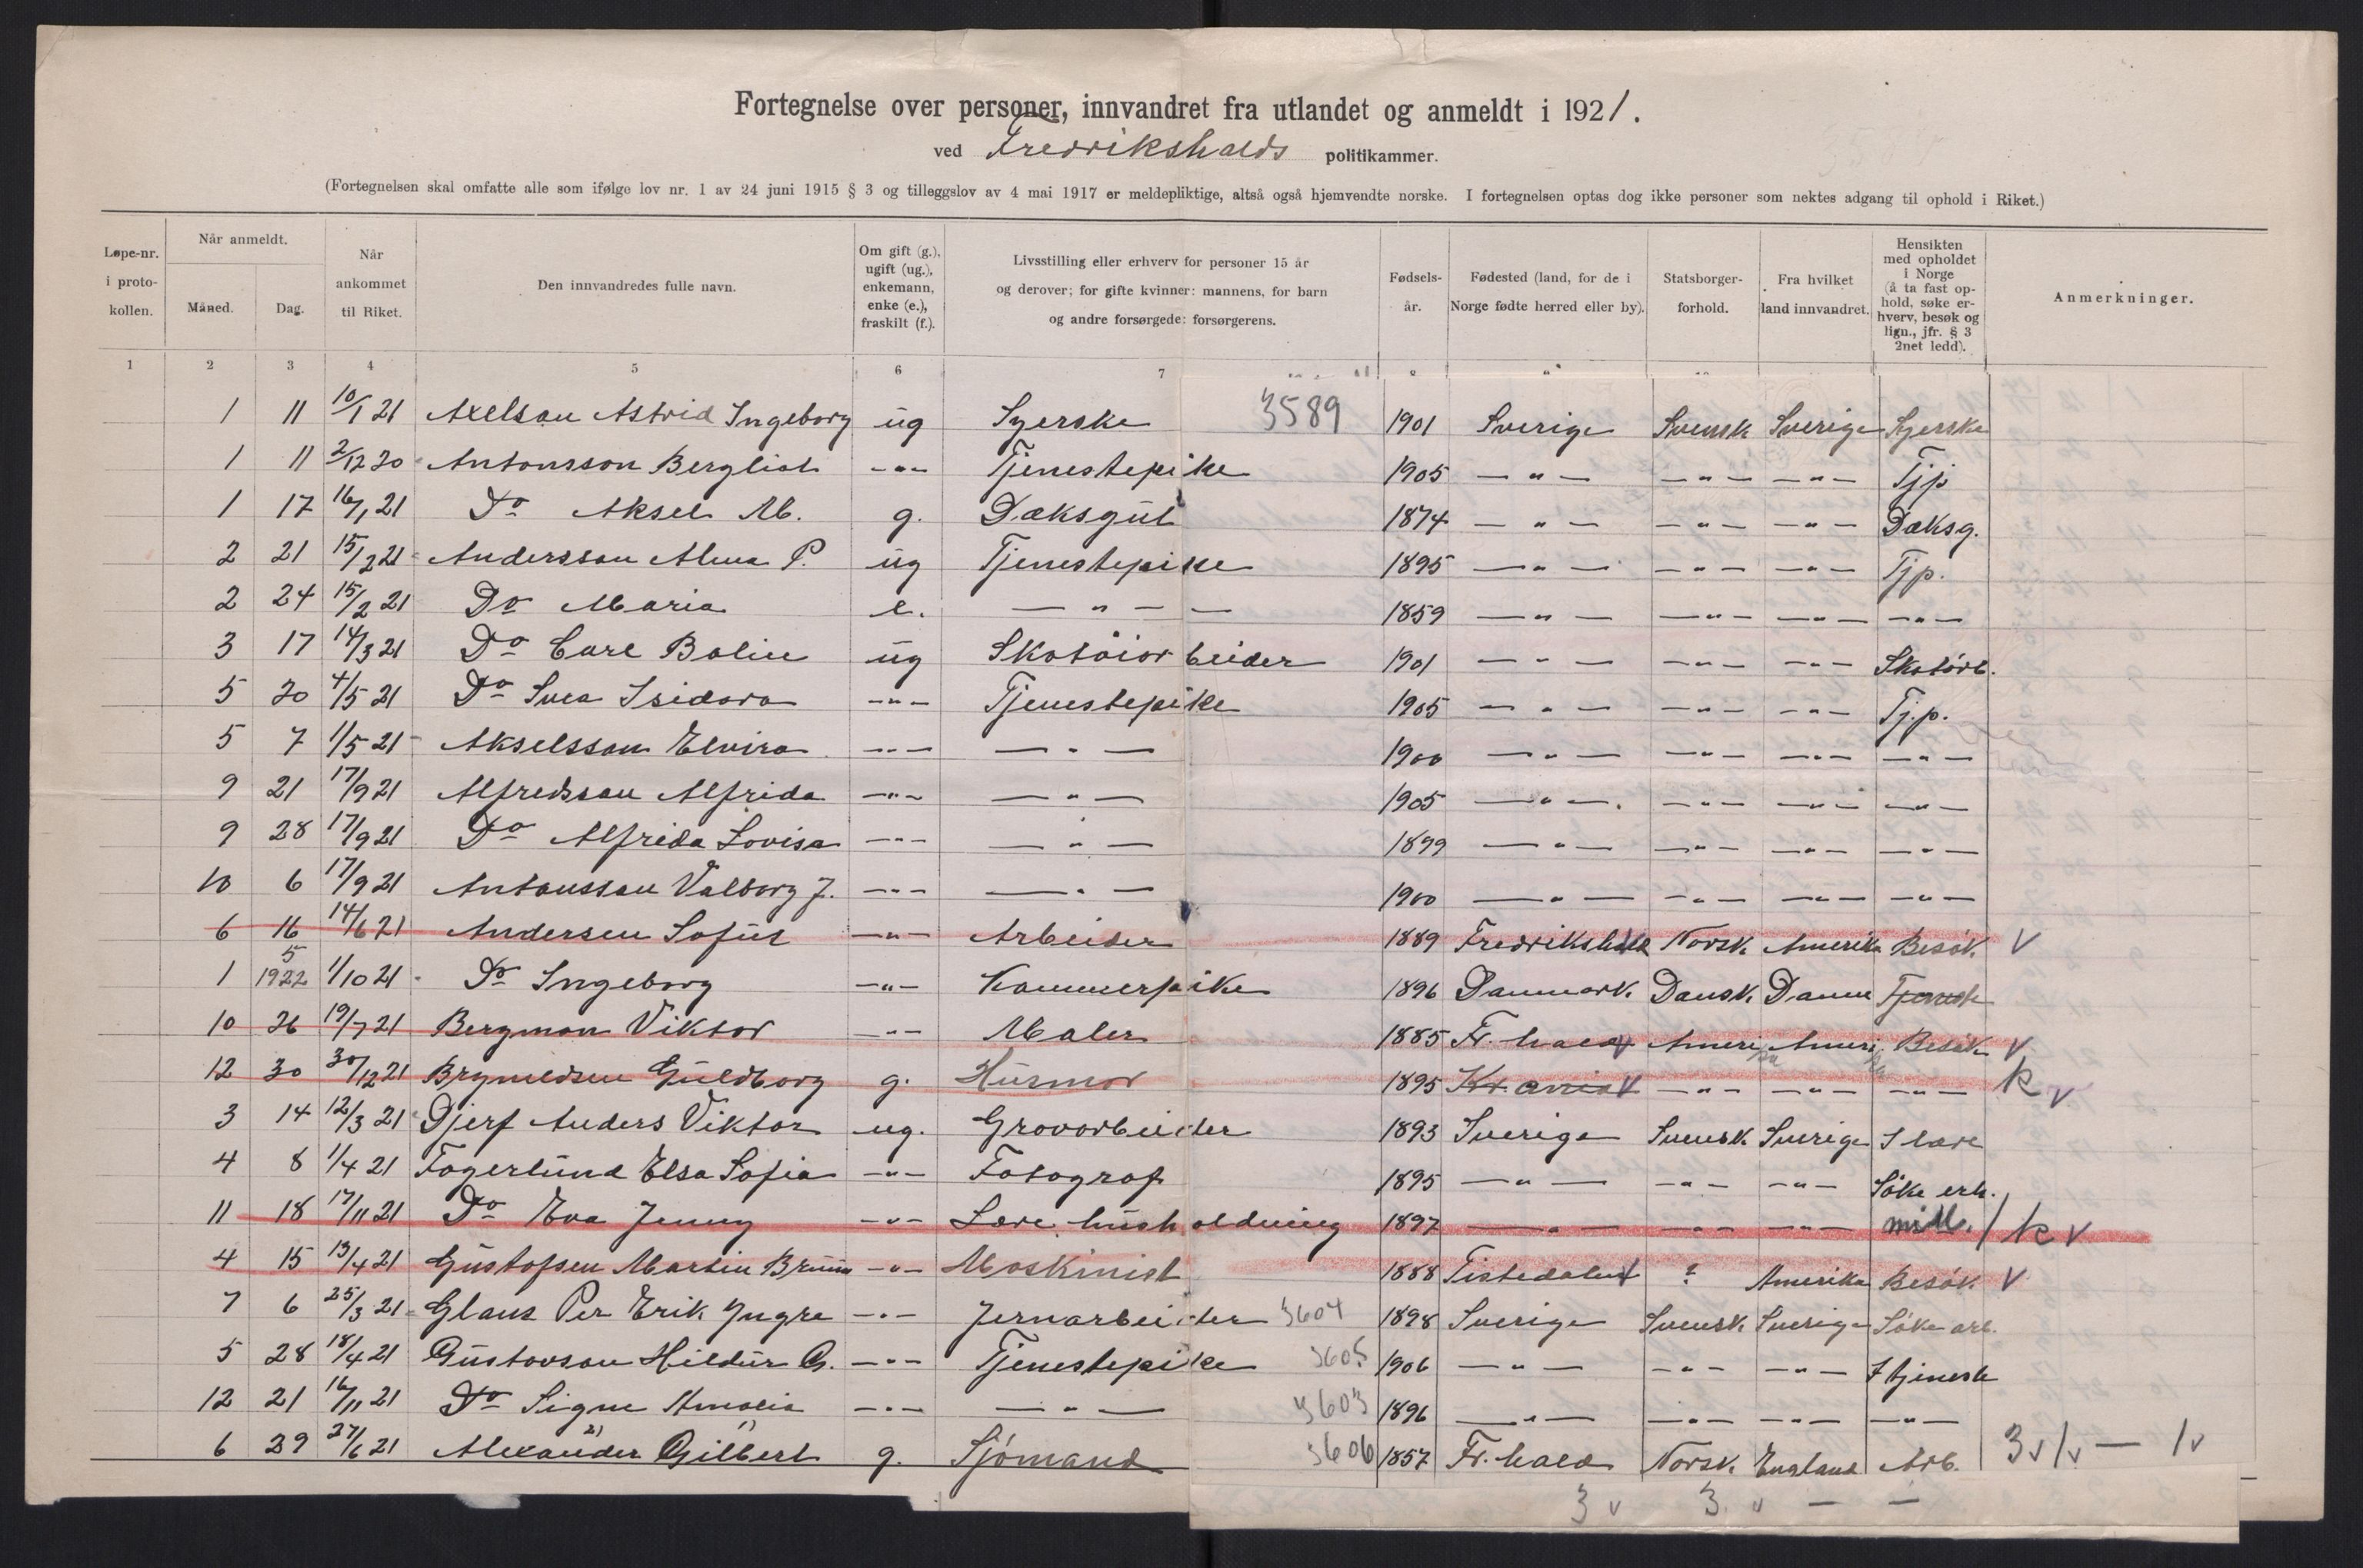 Fortegnelse over personer, innvandret fra utlandet og anmeldt i 1921.
ved Fredrikshalds politikammer.
(Fortegnelsen skal omfatte alle som ifølge lov nr. 1 av 24 juni 1915 § 3 og tilleggslov av 4 mai 1917 er meldepliktige, altså også hjemvendte norske. I fortegnelsen optas dog ikke personer som nektes adgang til ophold i Riket.)
Løpe-nr. i protokollen. Når anmeldt. Måned. Dag. Når ankommet til Riket. Den innvandredes fulle navn. Om gift (g.), ugift (ug.), enkemann, enke (e.), fraskilt (f.). Livsstilling eller erhverv for personer 15 år og derover; for gifte kvinner: mannens, for barn og andre forsørgede: forsørgerens. Fødselsår. Fødested (land, for de i Norge fødte herred eller by). Statsborgerforhold. Fra hvilket land innvandret. Hensikten med opholdet i Norge (å ta fast ophold, søke erhverv, besøk og lign., jfr. § 3 2net ledd). Anmerkninger.
1 2 3 4 5 6 7
1 11 10/1 21 Axelsson Astrid Ingeborg ug Syerske 3589 1901 Sverige Svensk Sverige Syerske
1 11 2/12 20 Antonsson Bergliot -"- Tjenestepike 1905 -"- -"- -"- Tjp
1 17 16/1 21 Do Aksel M. g. Dæksgut 1874 -"- -"- -"- Dæksg.
2 21 15/2 21 Andersson Alma P. ug Tjenestepike 1895 -"- -"- -"- Tjp.
2 24 15/2 21 Do Maria e. -"- 1859 -"- -"- -"- -"-
3 17 14/3 21 Do Carl Bolin ug Skotøiarbeider 1901 -"- -"- -"- Skotörb.
5 20 4/5 21 Do Svea Isidora -"- Tjenestepike 1905 -"- -"- -"- Tj.p.
5 7 1/5 21 Akselsson Elvira -"- -"- 1900 -"- -"- -"- -"-
9 21 17/9 21 Alfredsson Alfrida -"- -"- 1905 -"- -"- -"- -"-
9 28 17/9 21 Do Alfrida Lovisa -"- -"- 1899 -"- -"- -"- -"-
10 6 17/9 21 Antonsson Valborg J. -"- -"- 1900 -"- -"- -"- -"-
6 16 14/6 21 Andersen Sofus -"- Arbeider 1889 Fredrikshald Norsk Amerika Besök v
1 5 1922 1/10 21 Do Ingeborg -"- Kammerpike 1896 Danmark Dansk Danm Tjeneste
10 26 19/7 21 Bergman Viktor -"- Maler 1885 Fr. hald v Amerika Amerika Besök v
12 30 30/12 21 Brynildsen Guldborg g. Husmor 1895 Kr.ania v -"- -"- -"- k v
3 14 12/3 21 Djerf Anders Viktor ug. Grovarbeider 1893 Sverige Svensk Sverige I lære
4 8 1/4 21 Fagerlund Elsa Sofia -"- Fotograf 1895 -"- -"- -"- Söke erh.
11 18 17/11 21 Do Eva Jenny -"- Lære husholdning 1897 -"- -"- -"- midl. / k v
4 15 13/4 21 Gustafsen Martin Bruun -"- Maskinist 1888 Tistedalen v ? Amerika Besök v
7 6 25/3 21 Glans Per Erik Yngre -"- Jernarbeider 3604 1898 Sverige Svensk Sverige Söke arb.
5 28 18/4 21 Gustavson Hildur G. -"- Tjenestepike 3605 1906 -"- -"- -"- I tjeneste
12 21 16/11 21 Do Signe Amalia -"- -"- 3603 1896 -"- -"- -"- -"-
6 29 27/6 21 Alexander 2) Gilbert 1) g. Sjömand 3606 1857 Fr. hald Norsk England Arb. 3v 1v — 1v
3 v 3 v — —